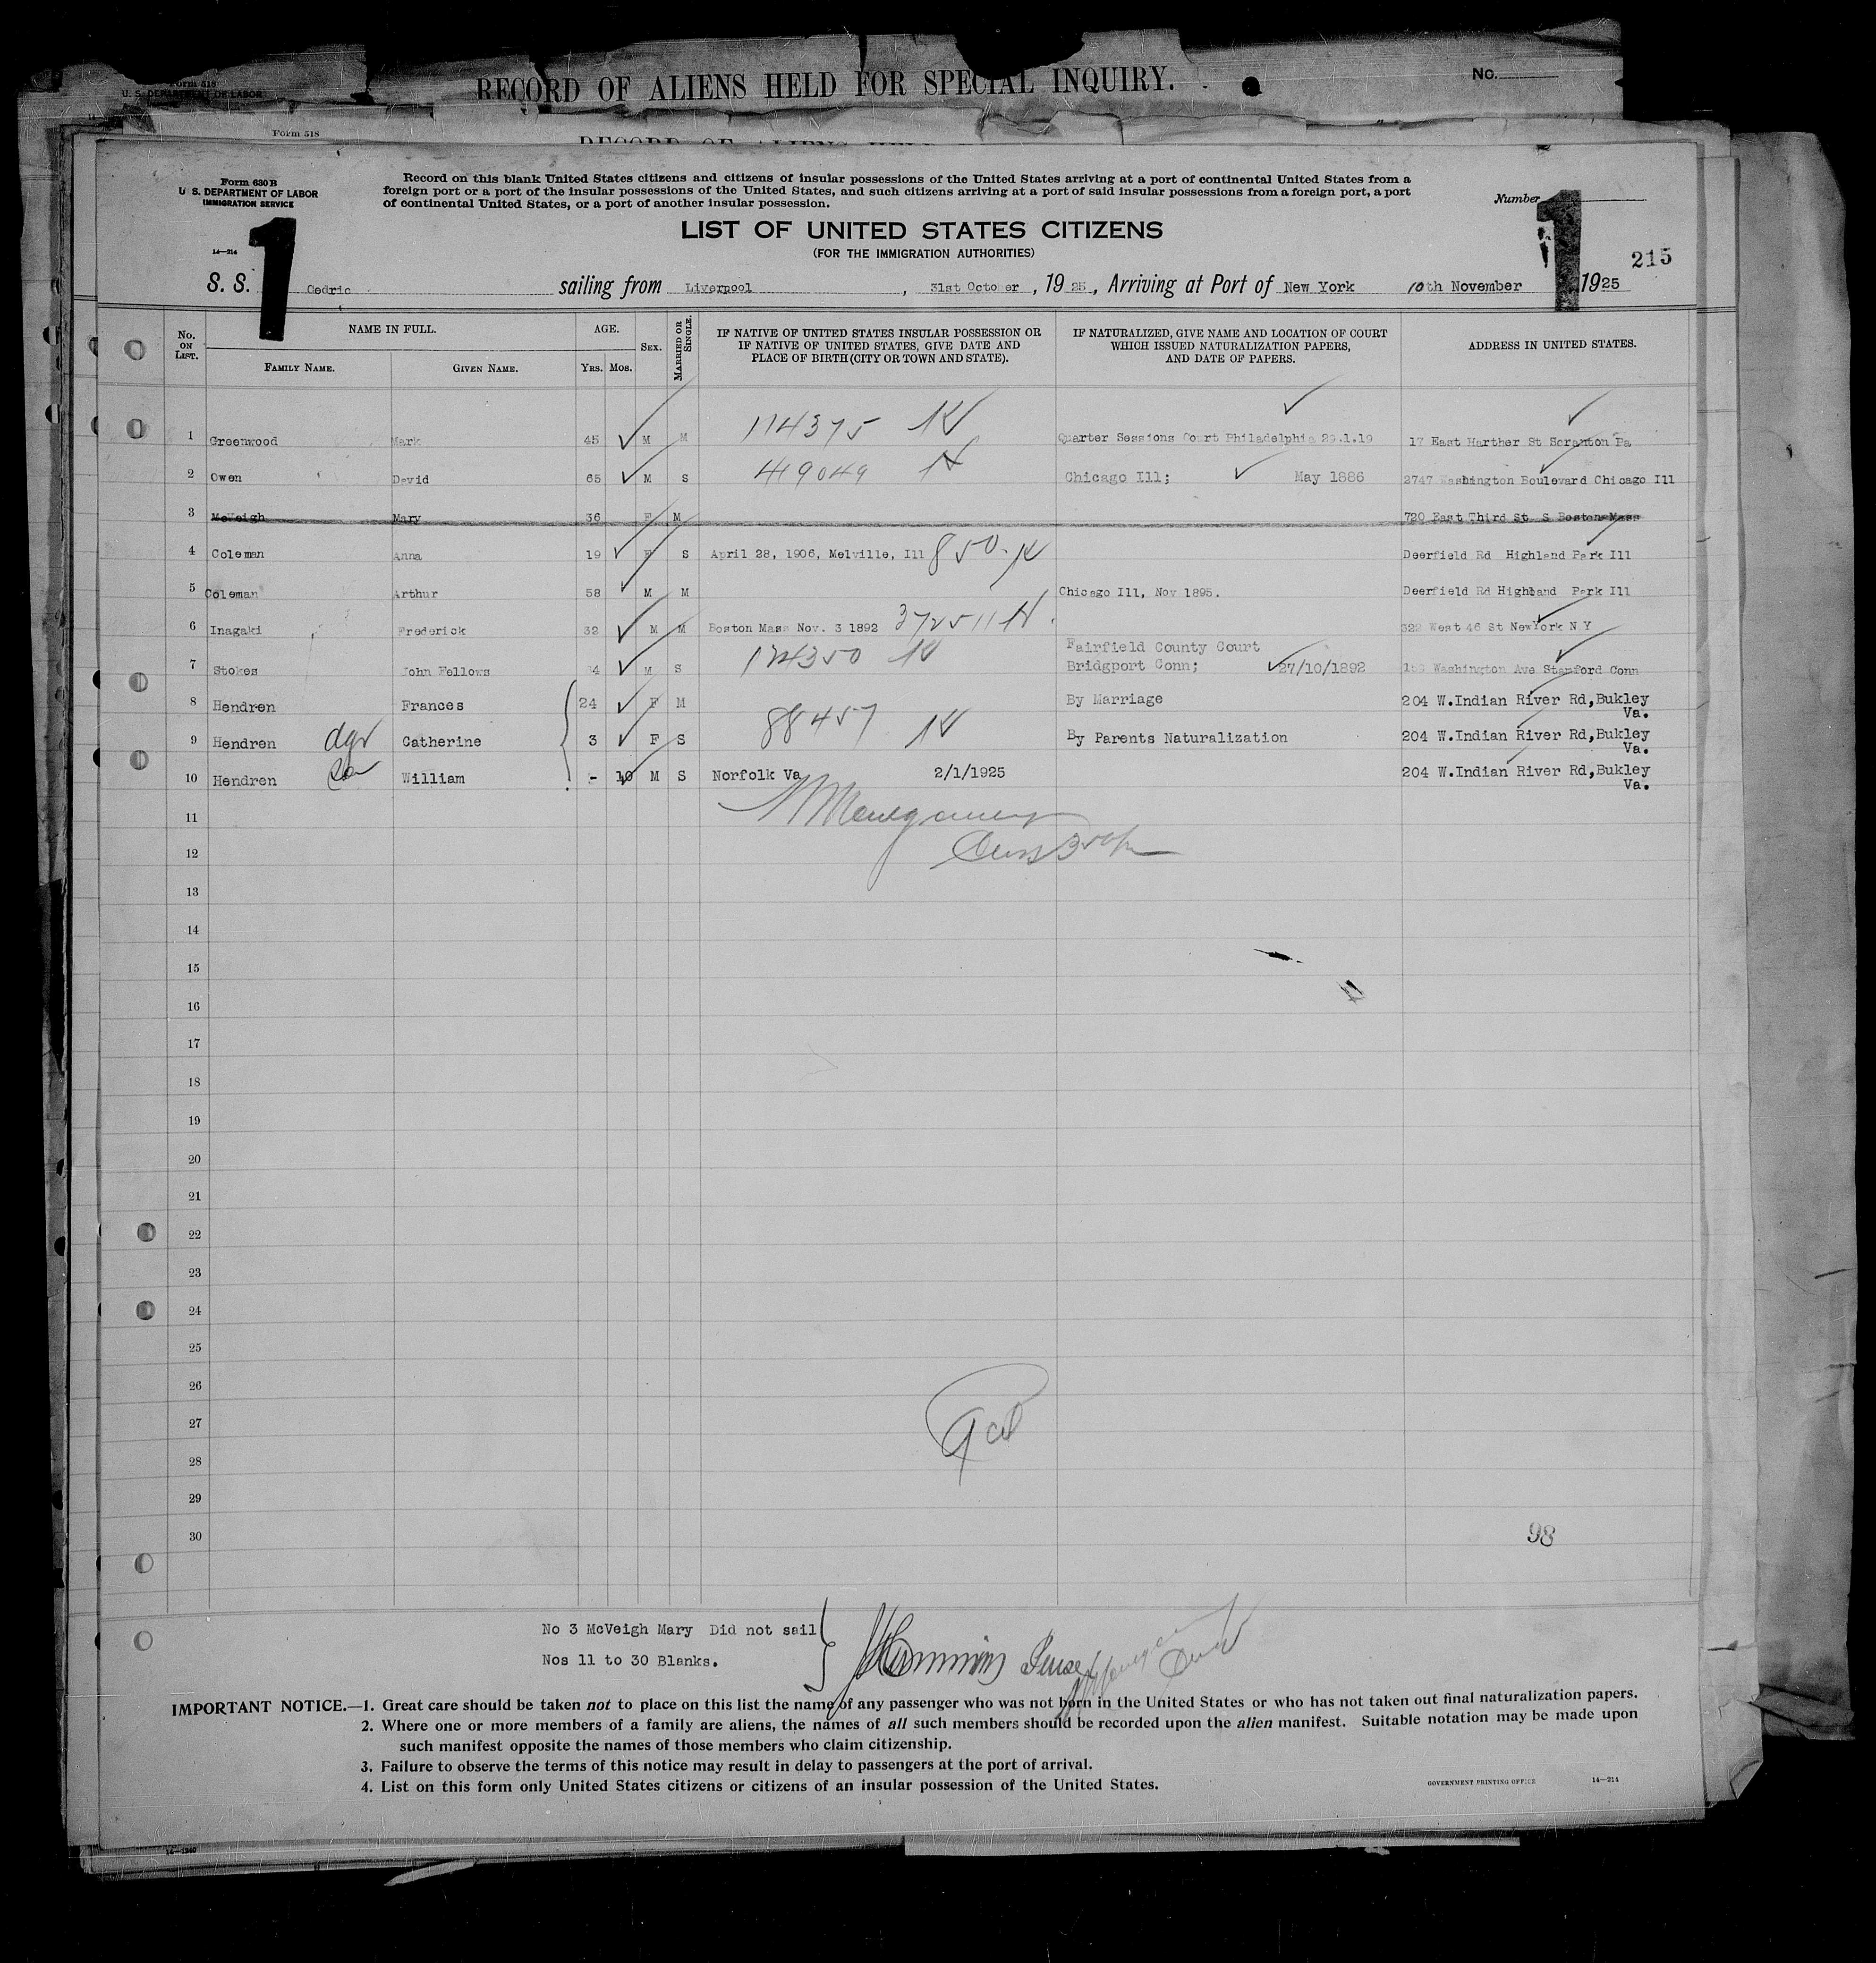 Form 518
U. S. DEPARTMENT OF LABOR
RECORD OF ALIENS HELD FOR SPECIAL INQUIRY.
No.
Form 518
Form 630 B
U. S. DEPARTMENT OF LABOR
IMMIGRATION SERVICE
14—214
Record on this blank United States citizens and citizens of insular possessions of the United States arriving at a port of continental United States from a
foreign port or a port of the insular possessions of the United States, and such citizens arriving at a port of said insular possessions from a foreign port, a port
of continental United States, or a port of another insular possession.
Number
1
1
215
LIST OF UNITED STATES CITIZENS
(FOR THE IMMIGRATION AUTHORITIES)
S. S. Cedric sailing from Liverpool, 31st October, 1925, Arriving at Port of New York 10th November 1925
No. ON LIST. NAME IN FULL. FAMILY NAME. GIVEN NAME. AGE. YRS. MOS. SEX. MARRIED OR SINGLE. IF NATIVE OF UNITED STATES INSULAR POSSESSION OR IF NATIVE OF UNITED STATES, GIVE DATE AND PLACE OF BIRTH (CITY OR TOWN AND STATE). IF NATURALIZED, GIVE NAME AND LOCATION OF COURT WHICH ISSUED NATURALIZATION PAPERS, AND DATE OF PAPERS. ADDRESS IN UNITED STATES.
1 Greenwood Mark 45 M M 114375 Quarter Sessions Court Philadelphia 29.1.19 17 East Harther St Scranton Pa
2 Owen David 65 M S 419049 Chicago Ill; May 1886 2747 Washington Boulevard Chicago Ill
3 McVeigh Mary 36 F M 720 East Third St S Boston Mass
4 Coleman Anna 19 F S April 28, 1906, Melville, Ill 850 Deerfield Rd Highland Park Ill
5 Coleman Arthur 58 M M Chicago Ill, Nov 1895. Deerfield Rd Highland Park Ill
6 Inagaki Frederick 32 M M Boston Mass Nov. 3 1892 372511 322 West 46 St NewYork N Y
7 Stokes John Fellows M S 124350 Fairfield County Court Bridgport Conn; 27/10/1892 Washington Ave Stamford Conn
8 Hendren Frances 24 F M By Marriage 204 W.Indian River Rd,Bukley Va.
9 Hendren dgr Catherine 3 F S 88457 By Parents Naturalization 204 W.Indian River Rd,Bukley Va.
10 Hendren William - 10 M S Norfolk Va 2/1/1925 204 W.Indian River Rd,Bukley Va.
11
12
13
14
15
16
17
18
19
20
21
22
23
24
25
26
27
28
29
30
98
No 3 McVeigh Mary Did not sail
Nos 11 to 30 Blanks.
IMPORTANT NOTICE.—1. Great care should be taken not to place on this list the name of any passenger who was not born in the United States or who has not taken out final naturalization papers.
2. Where one or more members of a family are aliens, the names of all such members should be recorded upon the alien manifest. Suitable notation may be made upon
such manifest opposite the names of those members who claim citizenship.
3. Failure to observe the terms of this notice may result in delay to passengers at the port of arrival.
4. List on this form only United States citizens or citizens of an insular possession of the United States.
GOVERNMENT PRINTING OFFICE 14—214
14—1240